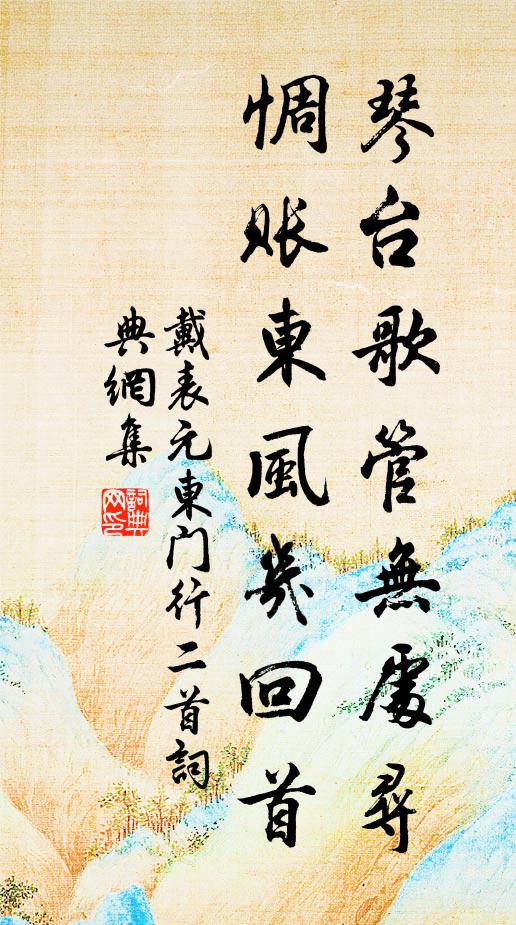 琴台歌管無處尋
惆账東風幾回首
戴表元東門行二首詞
典網集
詞典
网印